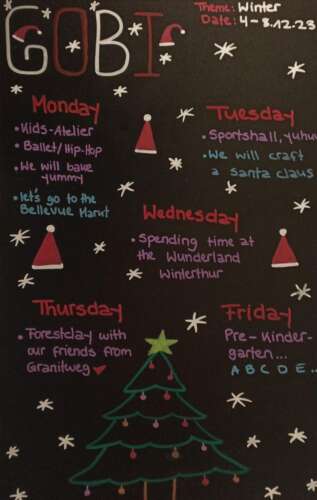 GOBI
Theme: Winter
Date: 4-8.12.23
Monday
• Kids-Atelier
• Ballet/Hip-Hop
• We will bake
yummy
• let's go to the
Bellevue Märit
Tuesday
• Sportshall, yuhu
• We will craft
a santa claus
Wednesday
• Spending time at
the Wunderland
Winterthur
Thursday
• Forestday with
our friends from
Granitweg
Friday
Pre-Kinder-
garten...
A B C D E ..